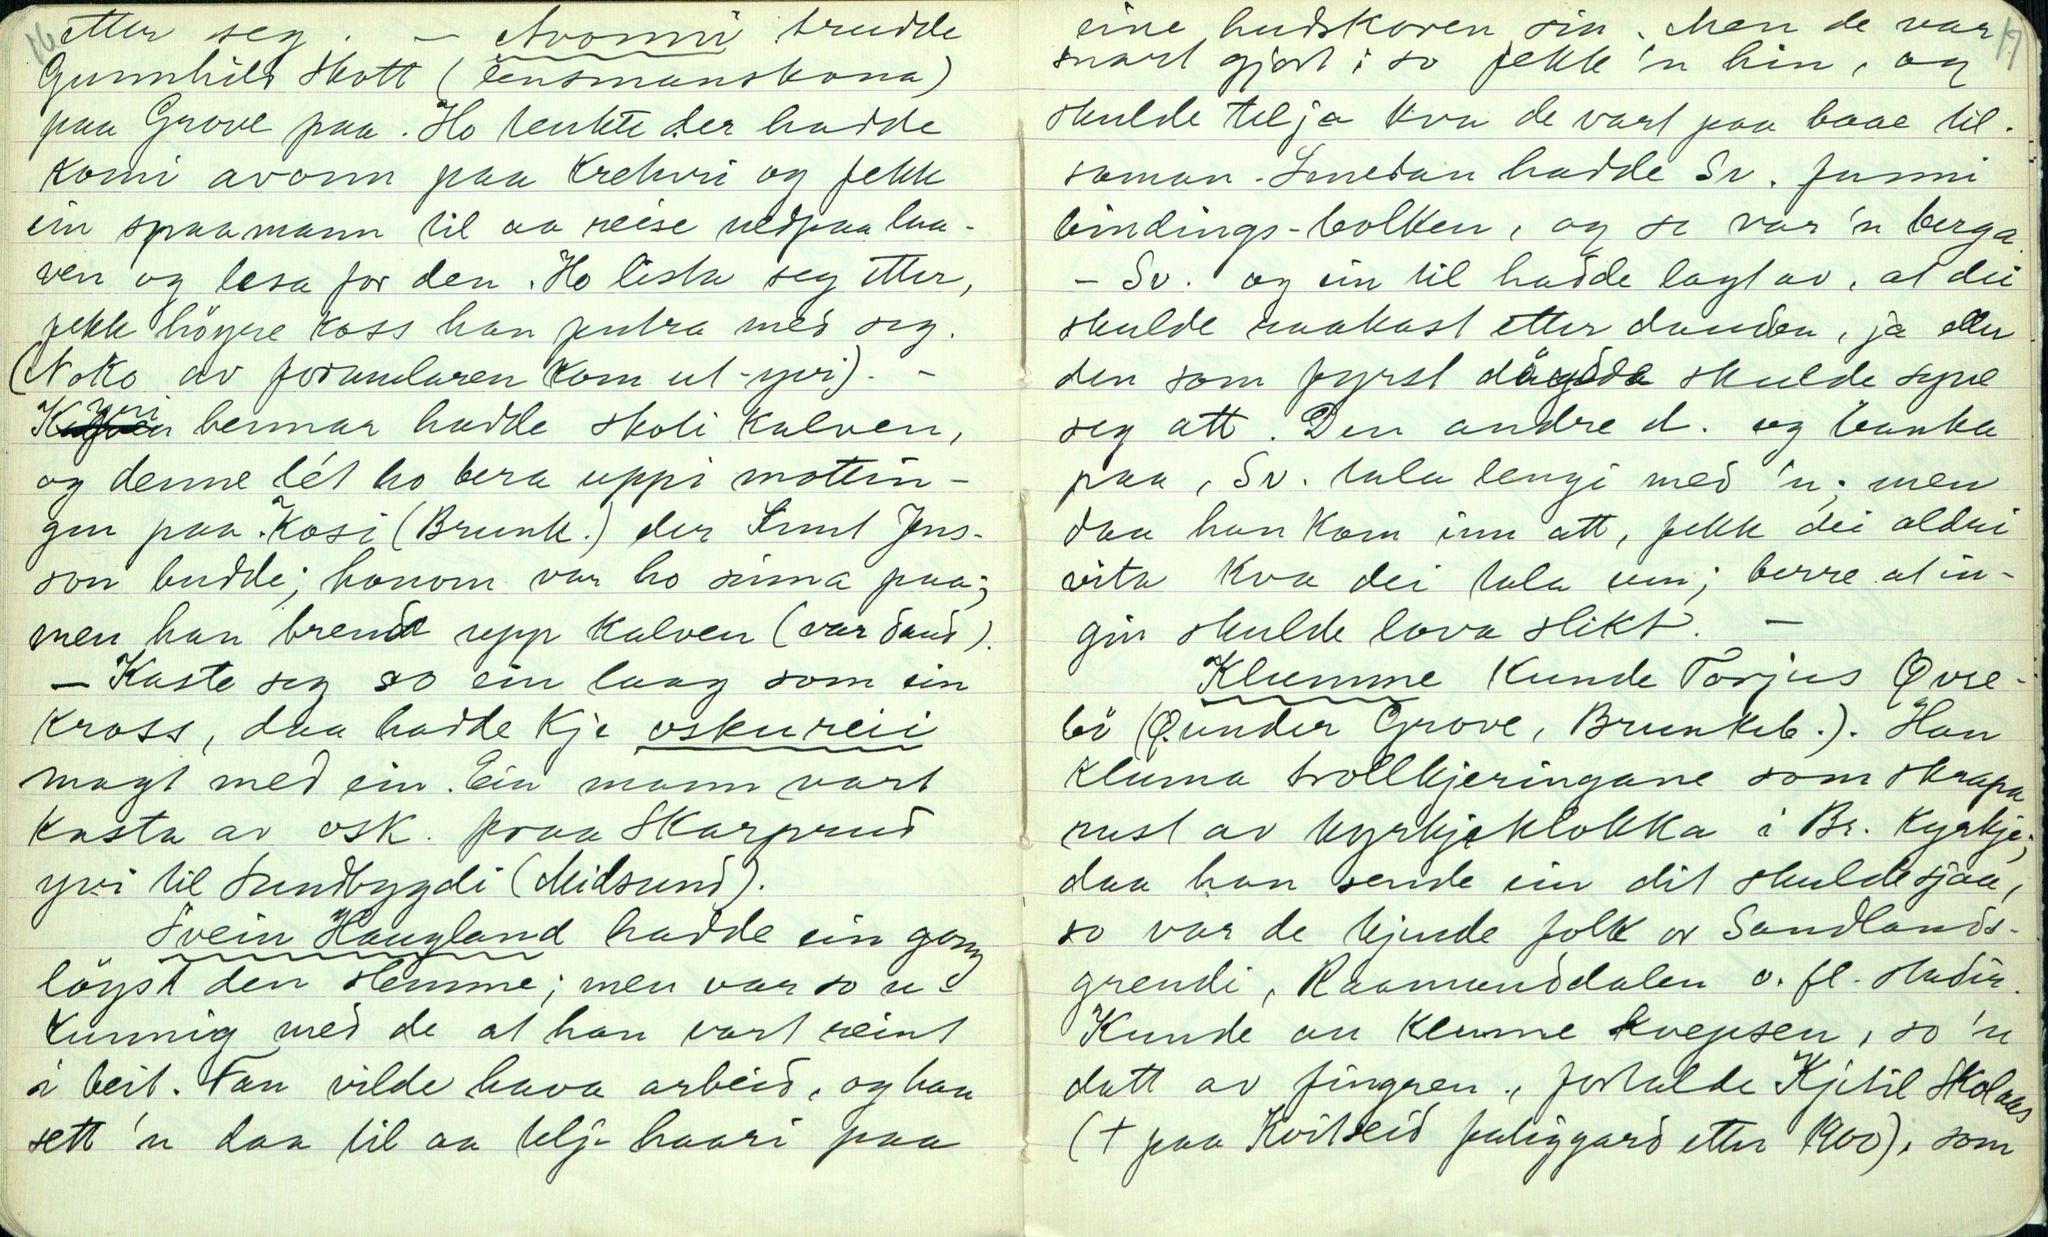 16
etter seg. – Avonni trudde
Gunnhild Skott (lensmanskona)
paa Grove paa. Ho tenkte der hadde
komi avonn paa krehvi og fekk
ein spaamann til aa reise nedpaa laa-
ven og lesa for den. Ho lista seg etter,
fekk höyre koss han putra med seg.
(Noko av formularen kom ut-yvi). –
yvi
bennar hadde skoli kalven,
og denne lét ho bera uppi mottin-
gen paa Kosi (Brunk.) der Knut Jens-
son budde; honom var ho sinna paa;
men han brende upp kalven (var daud).
– Kaste seg so ein laag som ein
kross, daa hadde kje oskureii
magt med ein. Ein mann vart
kasta av osk. fraa Skarprud
yvi til Sundbygdi (Midsund).
Svein Haugland hadde ein gong
löyst den slemme; men var so u-
kunnig med de at han vart reint
i beit. Fan vilde hava arbeid, og han
sett 'n daa til aa telj- haari paa
17
eine hudskoren sin. Men de var
snart gjort; so fekk 'n hin, og
skulde telja kva de vart paa baae til-
saman. Imedan hadde Sv. funni
bindings-bolken, og so var 'n berga.
– Sv. og ein til hadde lagt av, at dei
skulde raakast etter dauden, ja eller
den som fyrst döydde skulde syne
seg att. Den andre d. og banka
paa, Sv. tala lengi med 'n; men
daa han kom inn att, fekk dei aldri
vita kva dei tala um; berre at in-
gin skulde lova slikt. –
Klumme kunde Torjus Øvre-
bö (Ø. under Grove, Brunkeb.). Han
kluma trollkjeringane som skrapa
rust av kyrkjeklokka i Br. kyrkje;
daa han sende ein dit skulde sjaa,
so var de kjende folk or Sandlands-
grendi, Raamunddalen o. fl. stadir.
Kunde an klumme kvepsen, so 'n
datt av fingren., fortalde Kjetil Skolaas
(+ paa Kvitseid fatiggard etter 1900), som